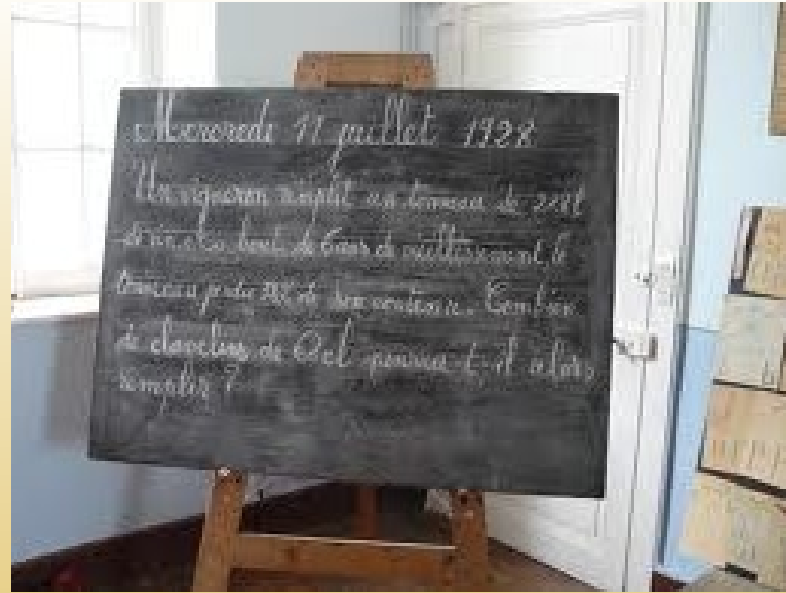 Mercredi 11 juillet 1928
Un vigneron remplit un tonneau de 228l
de vin. Au bout de 6 ans de vieillissement, le
tonneau perdu de son contenu. Combien
de clavelins de pourra-t-il alors
remplir ?